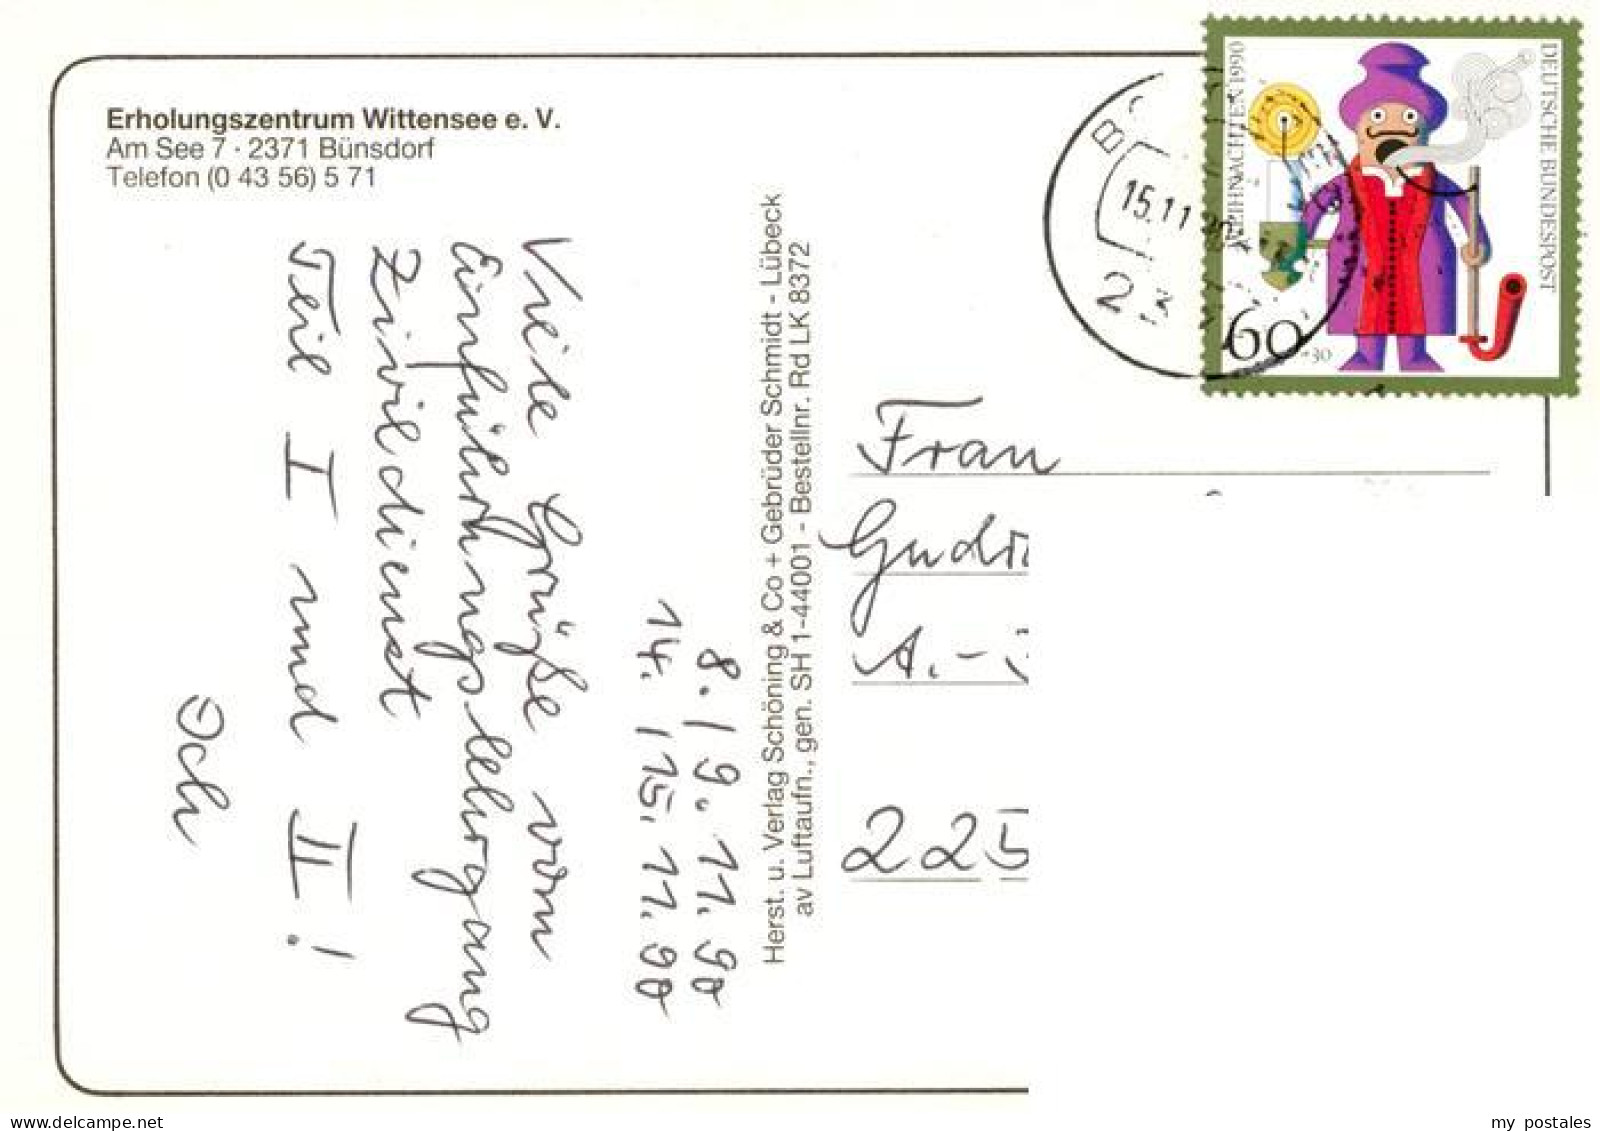 Erholungszentrum Wittensee e. V.
Am See 7 · 2371 Bünsdorf
Telefon (0 43 56) 5 71
8./9.11.90
14./15.11.90
Viele Grüße vom
Einführungslehrgang
Zivildienst
Teil I und II!
Herst. u. Verlag Schöning & Co + Gebrüder Schmidt - Lübeck
av Luftaufn., gen. SH 1-44001 - Bestellnr. Rd LK 8372
WEIHNACHTEN 1990
DEUTSCHE BUNDESPOST
60
+30
15.11.90
Frau
A.-
225
delcampe.net
my_postales